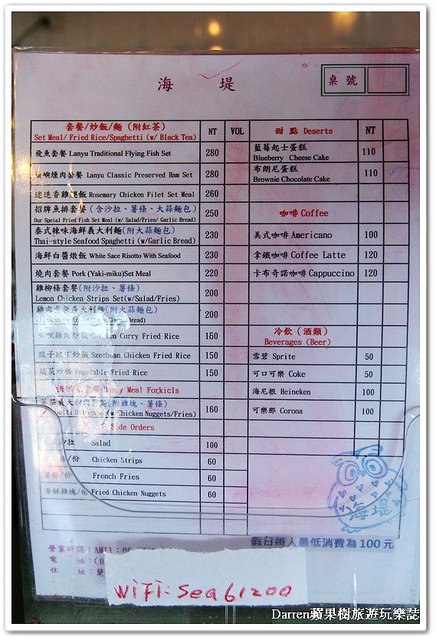 海堤
桌號
套餐/炒飯/麵 (附紅茶)
Set Meal/ Fried Rice/Spaghetti (w/ Black Tea)
NT VOL
飛魚套餐 Lanyu Traditional Flying Fish Set 280
Lanyu Classic Preserved Ham Set 280
迷迭香雞腿飯 Rosemary Chicken Filet Set Meal 260
招牌魚排套餐 (含沙拉、薯條、大蒜麵包)
Our Speial Fried Fish Set Meal (w/ Salad/Fries/ Garlic Bread) 250
泰式辣味海鮮義大利麵(附大蒜麵包)
Thai-style Seafood Spaghetti (w/Garlic Bread) 230
海鮮白醬燉飯 White Sace Risotto With Seafood 230
燒肉套餐 Pork (Yaki-miku)Set Meal 220
雞柳條套餐(附沙拉、薯條)
Lemon Chicken Strips Set(w/Salad/Fries) 200
義大利麵(附大蒜麵包)
Bread) 200
Chicken Curry Fried Rice 150
Szechuan Chicken Fried Rice 150
Vegetable Fried Rice 150
Meal
(附雞塊、薯條)
Chicken Nuggets/Fries) 160
Side Orders
沙拉 Salad 100
/份 Chicken Strips 60
/份 French Fries 60
香酥雞塊/份 Fried Chicken Nuggets 60
甜 點 Deserts NT
藍莓起士蛋糕
Blueberry Cheese Cake 110
布朗尼蛋糕
Brownie Chocolate Cake 110
咖啡 Coffee
美式咖啡 Americano 100
拿鐵咖啡 Coffee Latte 120
卡布奇諾咖啡 Cappuccino 120
冷飲 (酒類)
Beverages (Beer)
雪碧 Sprite 50
可口可樂 Coke 50
海尼根 Heineken 100
可樂那 Corona 100
海堤
假日每人最低消費為100元
營業時間:
電 話:
住 址:
WiFi: Sea61200
Darren蘋果樹旅遊玩樂誌